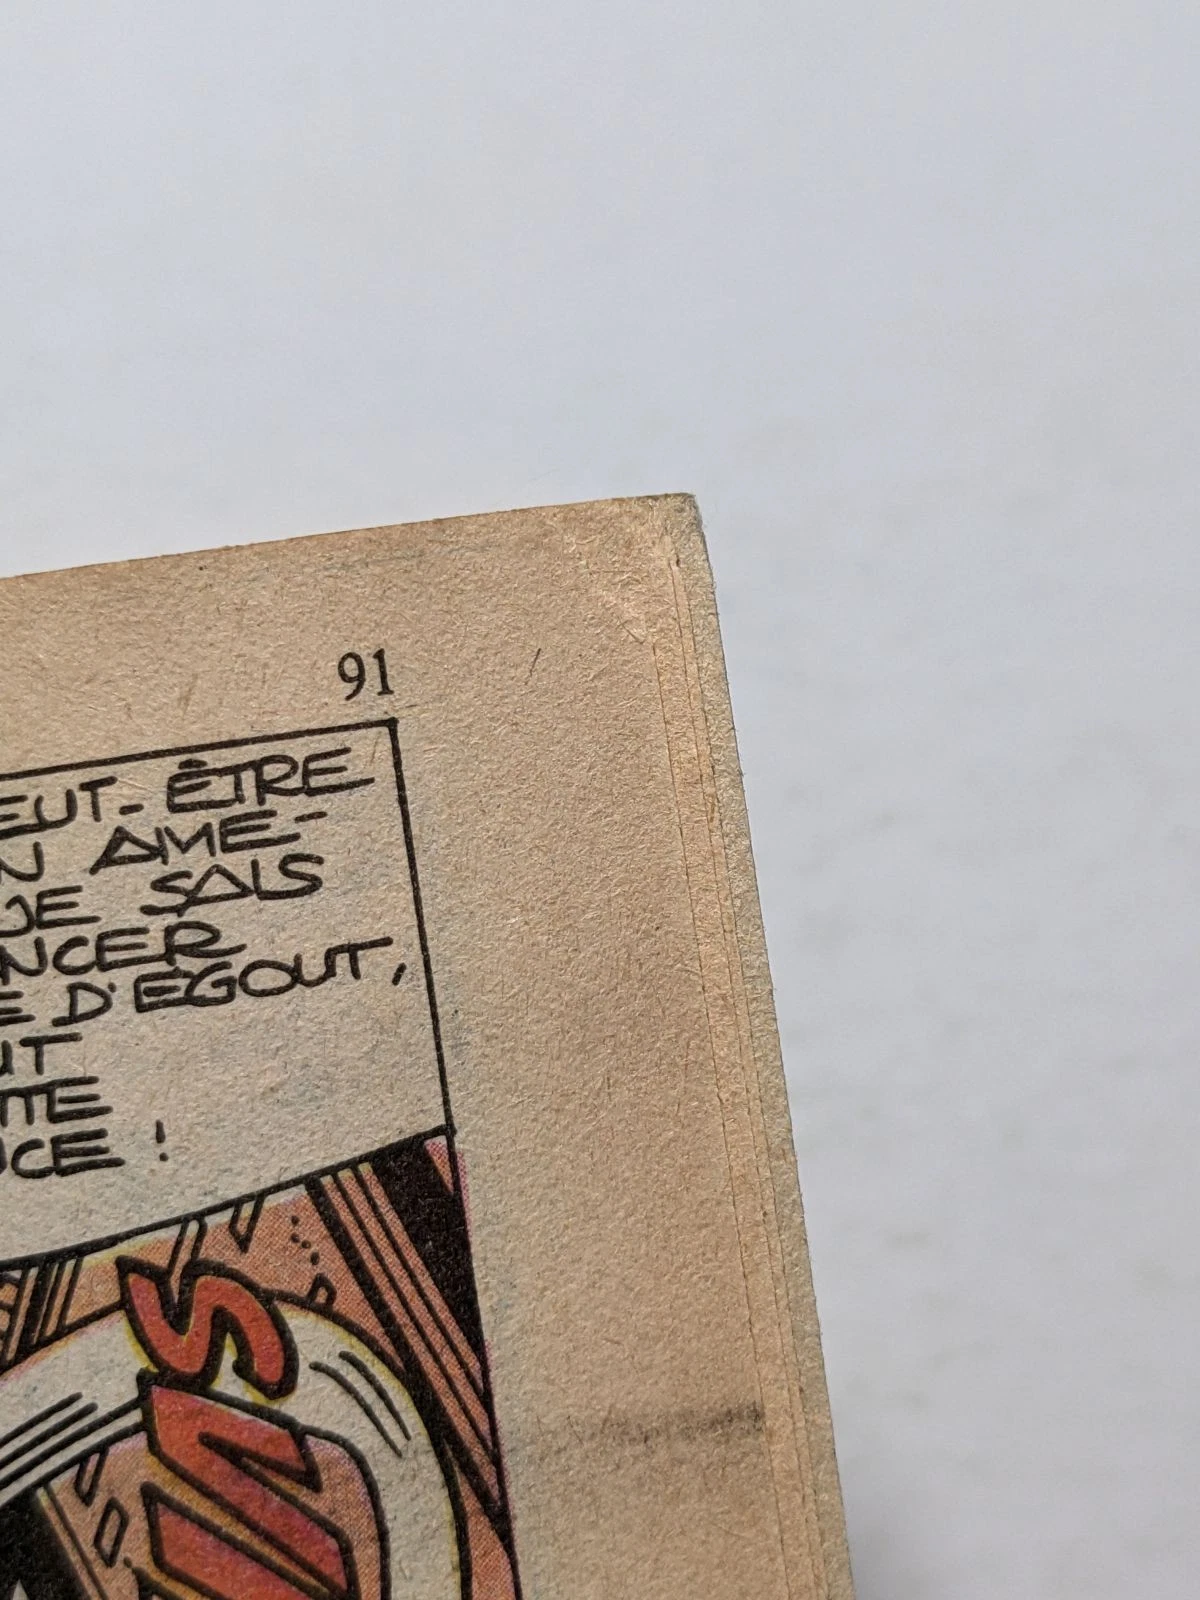 91
EUT-ÊTRE
N AMÉ-
UE SAIS
NCER
E D'ÉGOUT,
UT
TTE
CE !